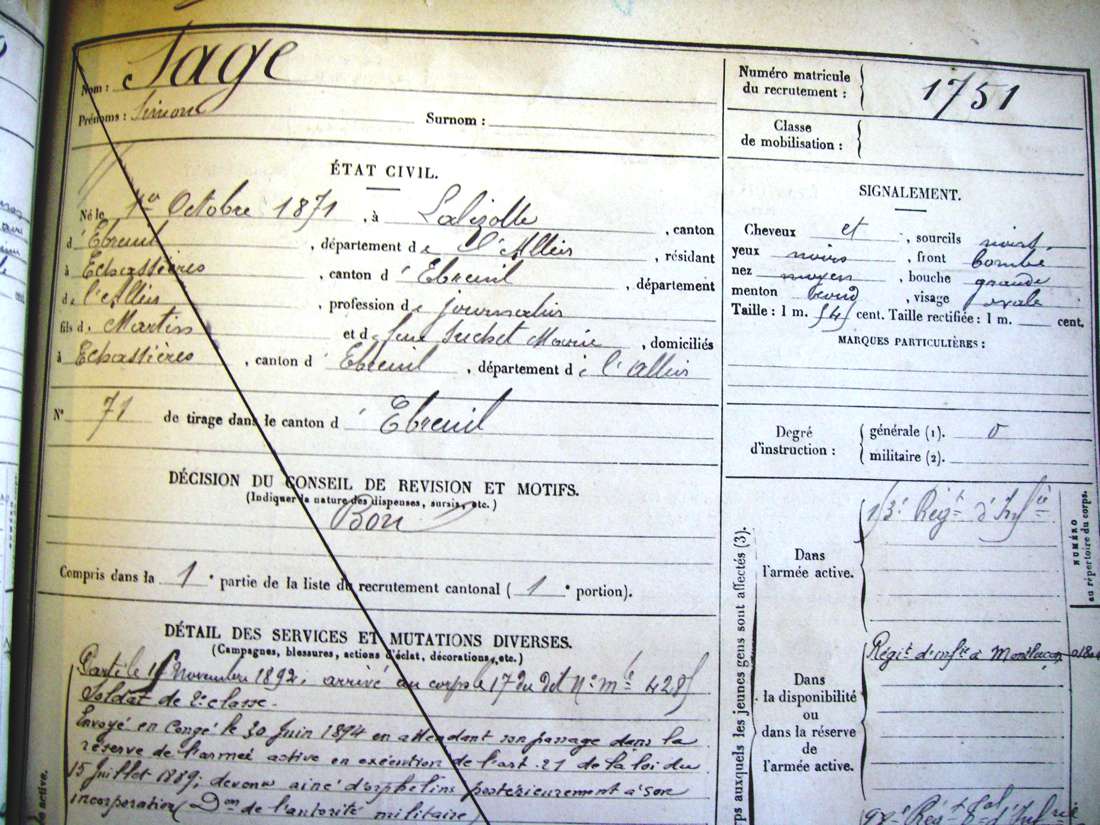 Nom : Sage
Prénoms : Simon Surnom :
Numéro matricule du recrutement : 1751
Classe de mobilisation :
ÉTAT CIVIL.
Né le 1er Octobre 1871, à Lalizolle, canton
d'Ebreuil, département de l'Allier, résidant
à Echassières, canton d'Ebreuil, département
de l'Allier, profession de journalier
fils de Martin et de feue Suchet Marie, domiciliés
à Echassières, canton d'Ebreuil, département de l'Allier
N° 71 de tirage dans le canton d'Ebreuil
SIGNALEMENT.
Cheveux et, sourcils noirs,
yeux noirs, front bombé
nez moyen, bouche grande
menton rond, visage ovale
Taille : 1 m. 54 cent. Taille rectifiée : 1 m. cent.
MARQUES PARTICULIÈRES :
Degré d'instruction : générale (1). 0
militaire (2).
DÉCISION DU CONSEIL DE REVISION ET MOTIFS.
(Indiquer la nature des dispenses, sursis, etc.)
Bon
Compris dans la 1e partie de la liste du recrutement cantonal (1e portion).
DÉTAIL DES SERVICES ET MUTATIONS DIVERSES.
(Campagnes, blessures, actions d'éclat, décorations, etc.)
Parti le Novembre 1892, arrivé au corps le 17 du dit N° mle
Soldat de 2e classe.
Envoyé en Congé le 30 Juin 1894 en attendant son passage dans la
réserve de l'armée active en exécution de l'art. 21 de la loi du
15 Juillet 1889, devenu ainé d'orphelins postérieurement à son
incorporation Don de l'autorité militaire
corps auxquels les jeunes gens sont affectés (3).
Dans l'armée active.
Régt d'Infie
NUMÉRO au répertoire du corps.
Dans la disponibilité ou dans la réserve de l'armée active.
Régit d'infie à Montluçon